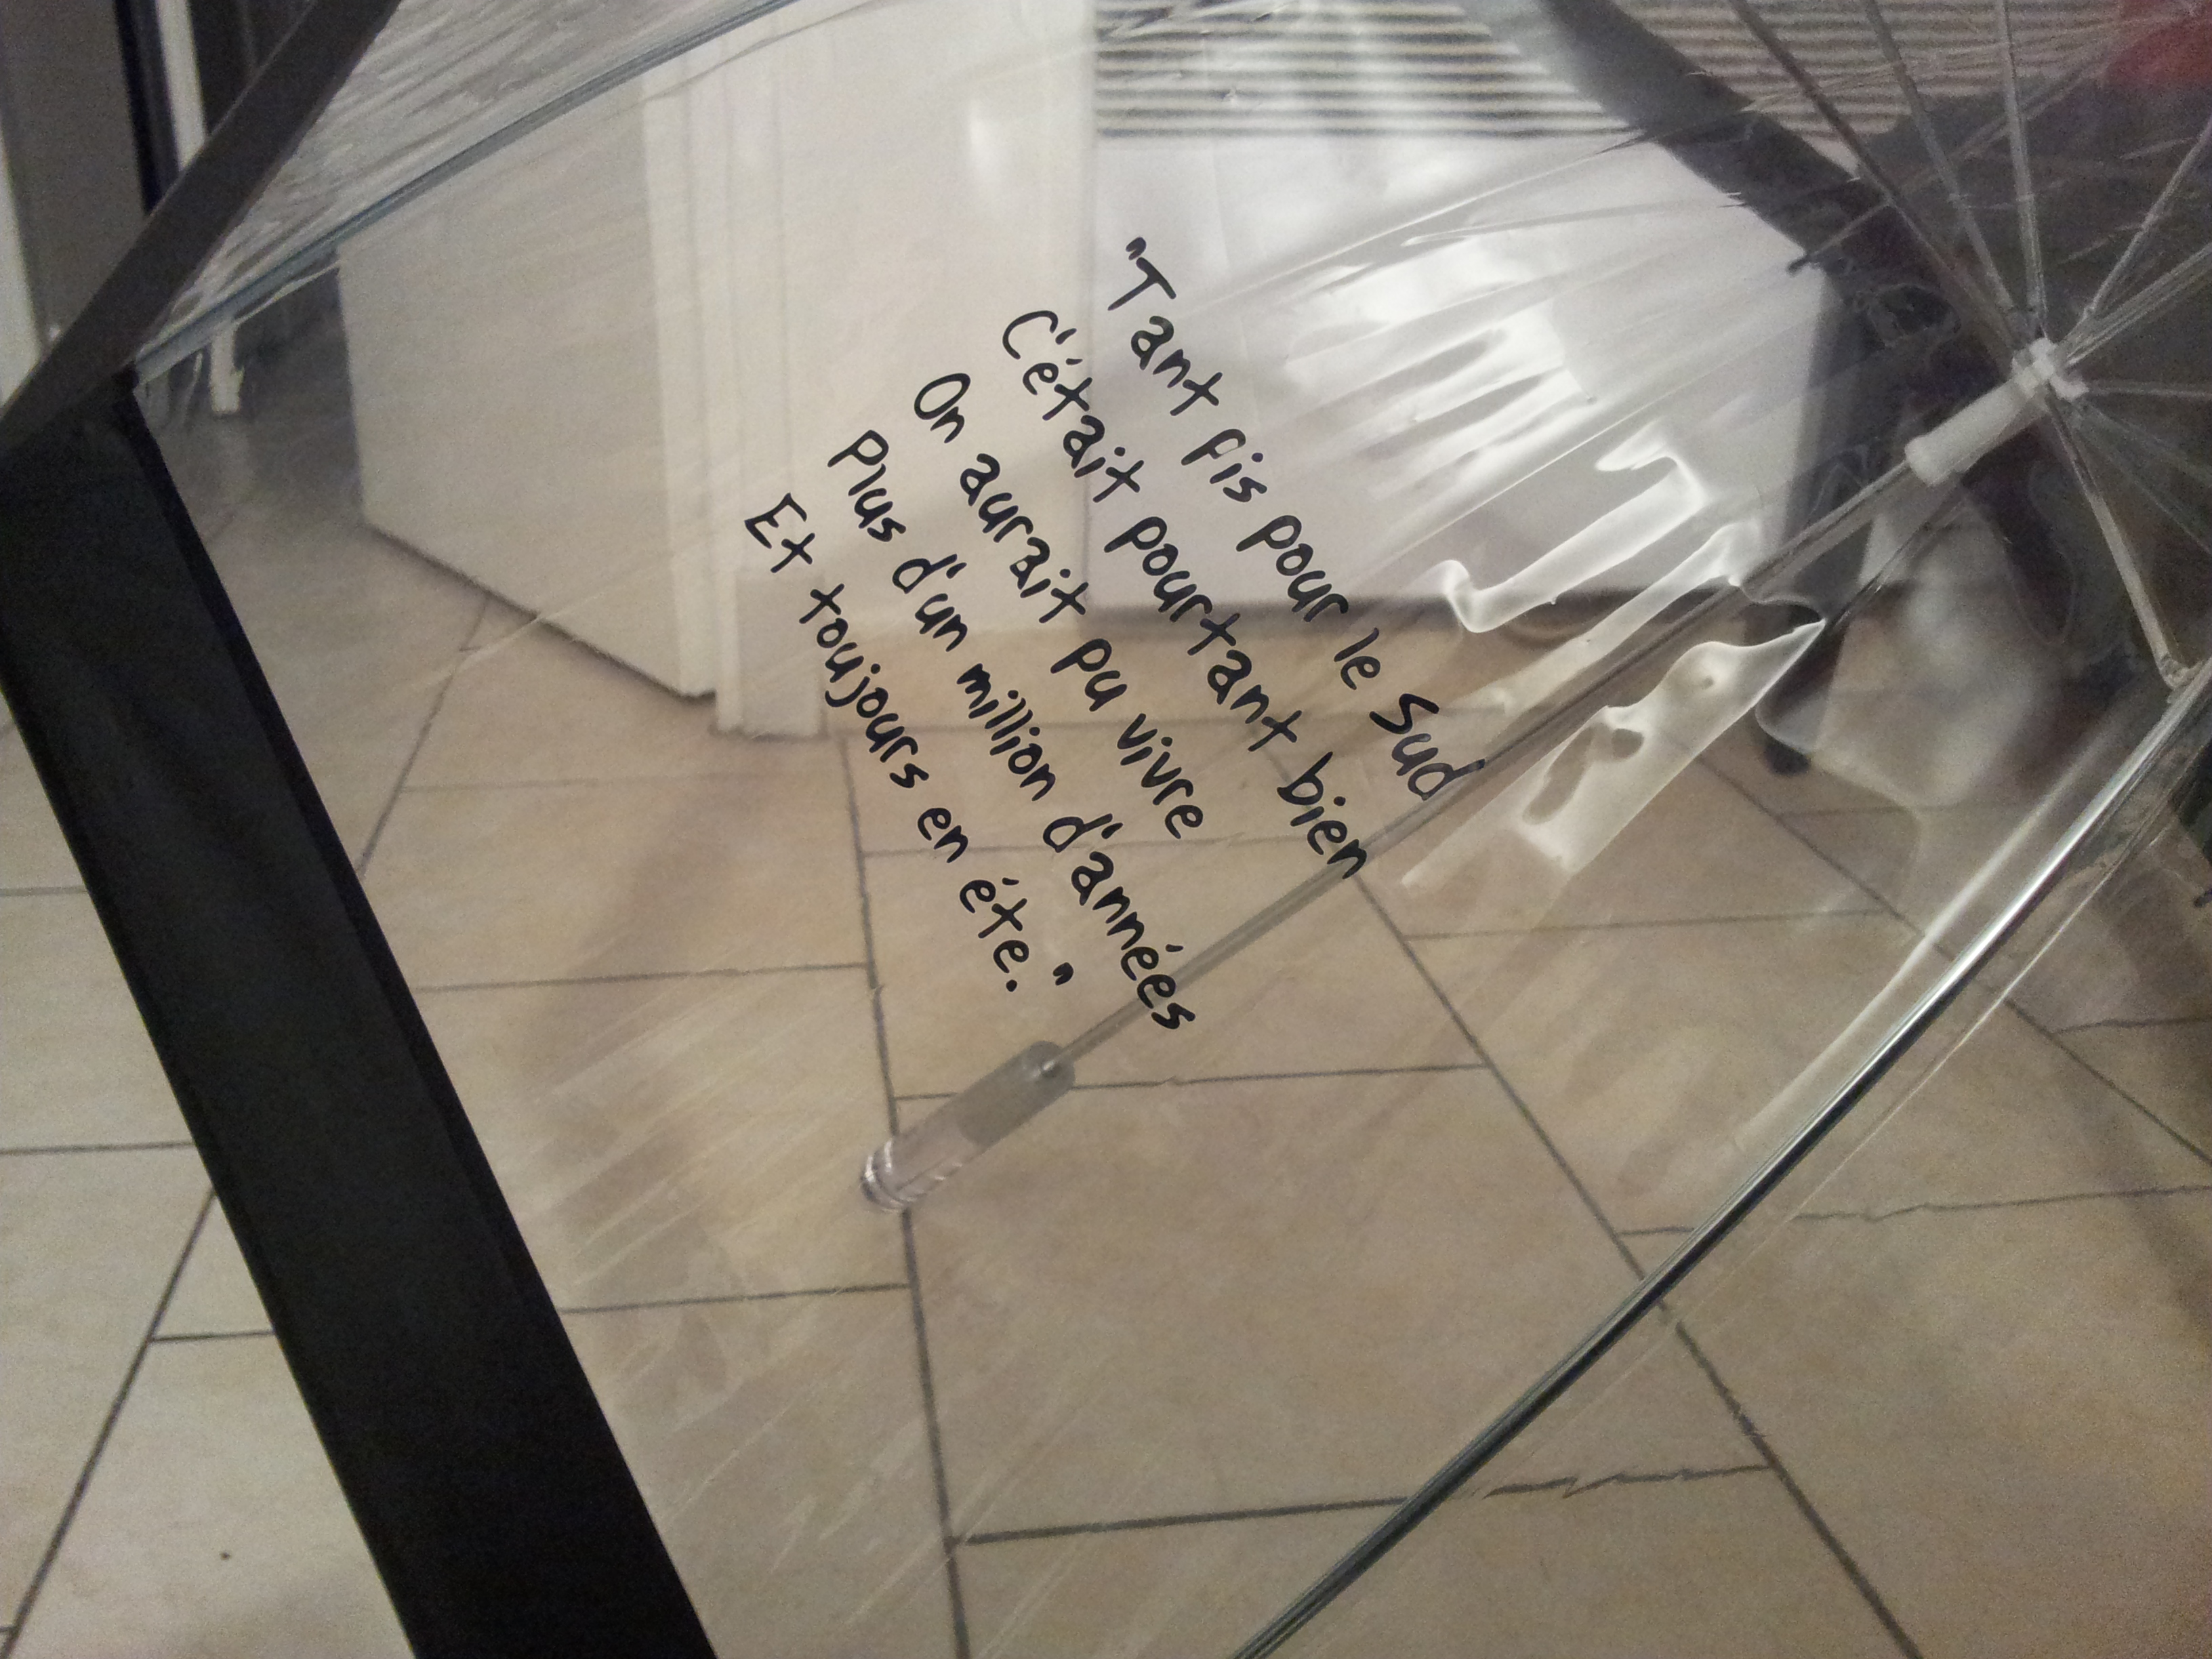 "Tant fis pour le Sud
C'était pourtant bien
On aurait pu vivre
Plus d'un million d'années
Et toujours en éte."